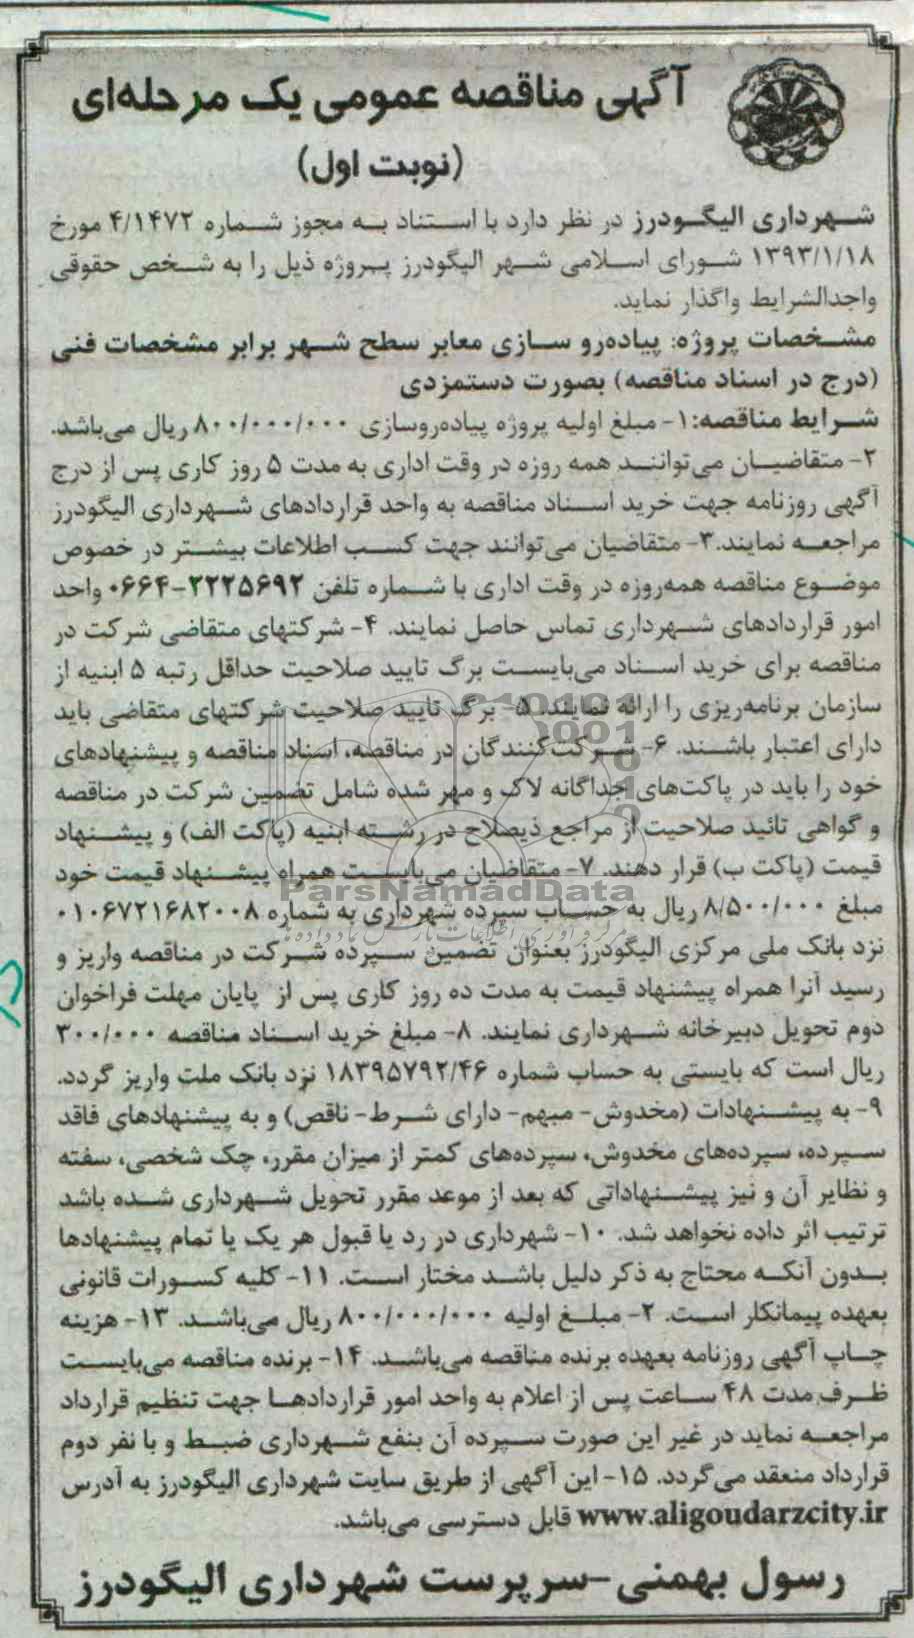 آگهی مناقصه عمومی یک مرحله‌ای
(نوبت اول)
شهرداری الیگودرز در نظر دارد با استناد به مجوز شماره ۴/۱۴۷۲ مورخ
۱۳۹۳/۱/۱۸ شورای اسلامی شهر الیگودرز پروژه ذیل را به شخص حقوقی
واجدالشرایط واگذار نماید.
مشخصات پروژه: پیاده‌رو سازی معابر سطح شهر برابر مشخصات فنی
(درج در اسناد مناقصه) بصورت دستمزدی
شرایط مناقصه:۱- مبلغ اولیه پروژه پیاده‌روسازی ۸۰۰/۰۰۰/۰۰۰ ریال می‌باشد.
۲- متقاضیان می‌توانند همه روزه در وقت اداری به مدت ۵ روز کاری پس از درج
آگهی روزنامه جهت خرید اسناد مناقصه به واحد قراردادهای شهرداری الیگودرز
مراجعه نمایند.۳- متقاضیان می‌توانند جهت کسب اطلاعات بیشتر در خصوص
موضوع مناقصه همه‌روزه در وقت اداری با شماره تلفن ۲۲۲۵۶۹۲-۰۶۶۴ واحد
امور قراردادهای شهرداری تماس حاصل نمایند. ۴- شرکتهای متقاضی شرکت در
مناقصه برای خرید اسناد می‌بایست برگ تایید صلاحیت حداقل رتبه ۵ ابنیه از
سازمان برنامه‌ریزی را ارائه نمایند. ۵- برگ تایید صلاحیت شرکتهای متقاضی باید
دارای اعتبار باشند. ۶- شرکت‌کنندگان در مناقصه، اسناد مناقصه و پیشنهادهای
خود را باید در پاکت‌های جداگانه لاک و مهر شده شامل تضمین شرکت در مناقصه
و گواهی تائید صلاحیت از مراجع ذیصلاح در رشته ابنیه (پاکت الف) و پیشنهاد
قیمت (پاکت ب) قرار دهند. ۷- متقاضیان می‌بایست همراه پیشنهاد قیمت خود
ParsNamadData
مبلغ ۸/۵۰۰/۰۰۰ ریال به حساب سپرده شهرداری به شماره ۰۱۰۶۷۲۱۶۸۲۰۰۸
نزد بانک ملی مرکزی الیگودرز بعنوان تضمین سپرده شرکت در مناقصه واریز و
رسید آنرا همراه پیشنهاد قیمت به مدت ده روز کاری پس از پایان مهلت فراخوان
دوم تحویل دبیرخانه شهرداری نمایند. ۸- مبلغ خرید اسناد مناقصه ۳۰۰/۰۰۰
ریال است که بایستی به حساب شماره ۱۸۳۹۵۷۹۲/۴۶ نزد بانک ملت واریز گردد.
۹- به پیشنهادات (مخدوش- مبهم- دارای شرط- ناقص) و به پیشنهادهای فاقد
سپرده، سپرده‌های مخدوش، سپرده‌های کمتر از میزان مقرر، چک شخصی، سفته
و نظایر آن و نیز پیشنهاداتی که بعد از موعد مقرر تحویل شهرداری شده باشد
ترتیب اثر داده نخواهد شد. ۱۰- شهرداری در رد یا قبول هر یک یا تمام پیشنهادها
بدون آنکه محتاج به ذکر دلیل باشد مختار است. ۱۱- کلیه کسورات قانونی
بعهده پیمانکار است. ۲- مبلغ اولیه ۸۰۰/۰۰۰/۰۰۰ ریال می‌باشد. ۱۳- هزینه
چاپ آگهی روزنامه بعهده برنده مناقصه می‌باشد. ۱۴- برنده مناقصه می‌بایست
ظرف مدت ۴۸ ساعت پس از اعلام به واحد امور قراردادها جهت تنظیم قرارداد
مراجعه نماید در غیر این صورت سپرده آن بنفع شهرداری ضبط و با نفر دوم
قرارداد منعقد می‌گردد. ۱۵- این آگهی از طریق سایت شهرداری الیگودرز به آدرس
www.aligoudarzcity.ir قابل دسترسی می‌باشد.
رسول بهمنی-سرپرست شهرداری الیگودرز